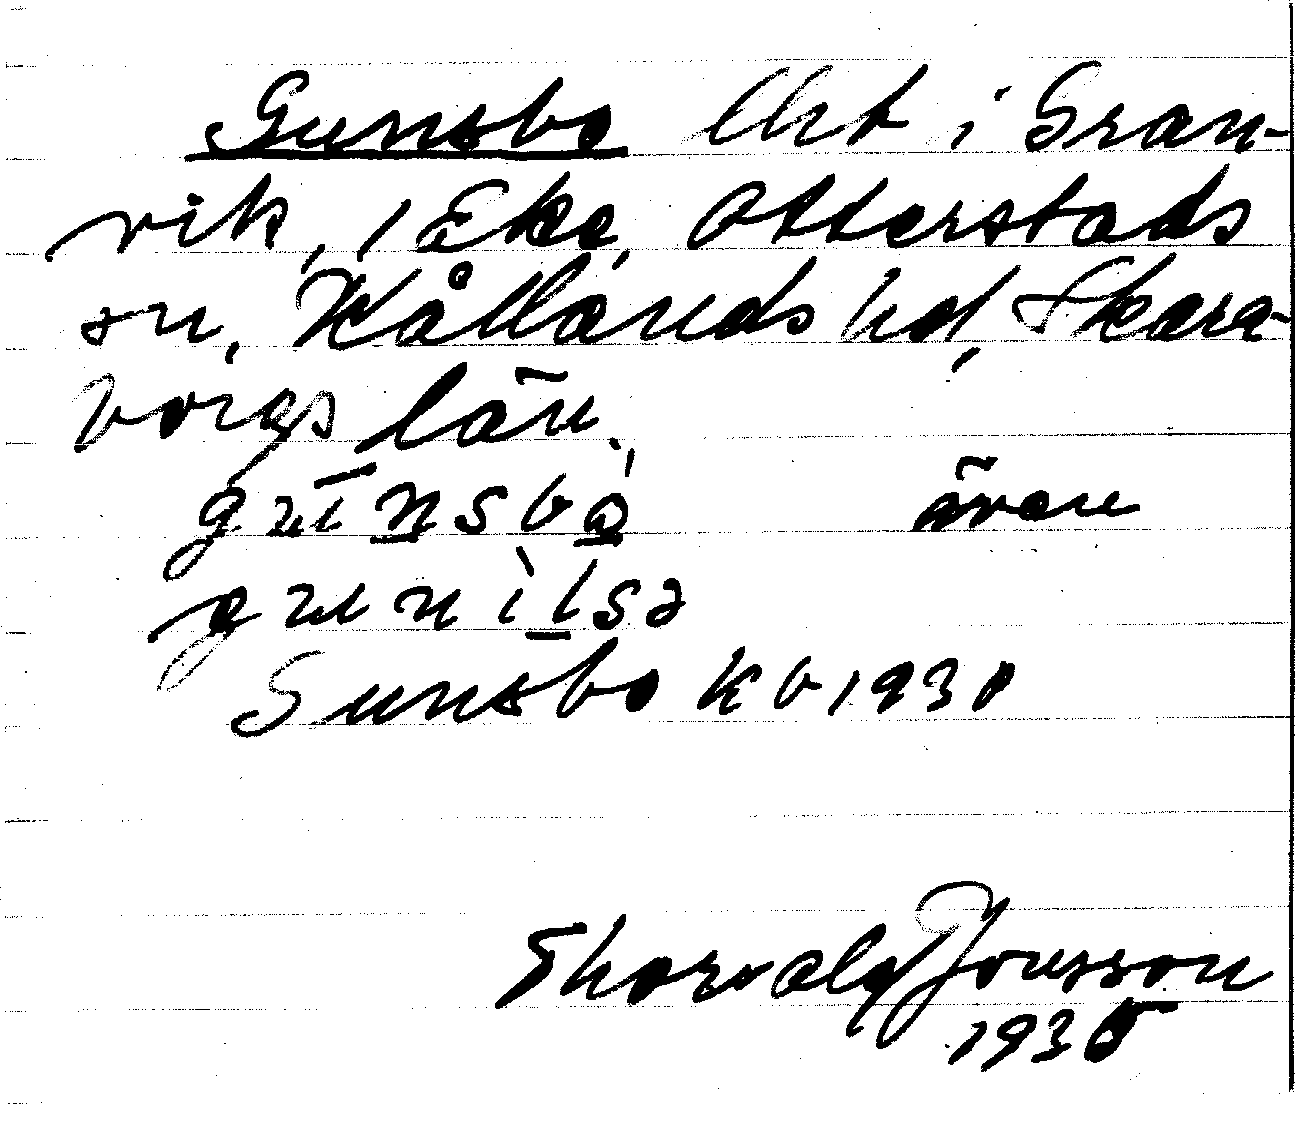 Gunsbo lht i Gran-
vik, 1 Eke, Otterstads
sn, Kållands hd, Skara-
borgs län.
gunsbo även
gunilsa
Gunsbo kb 1930
Thorvald Jonsson
1935